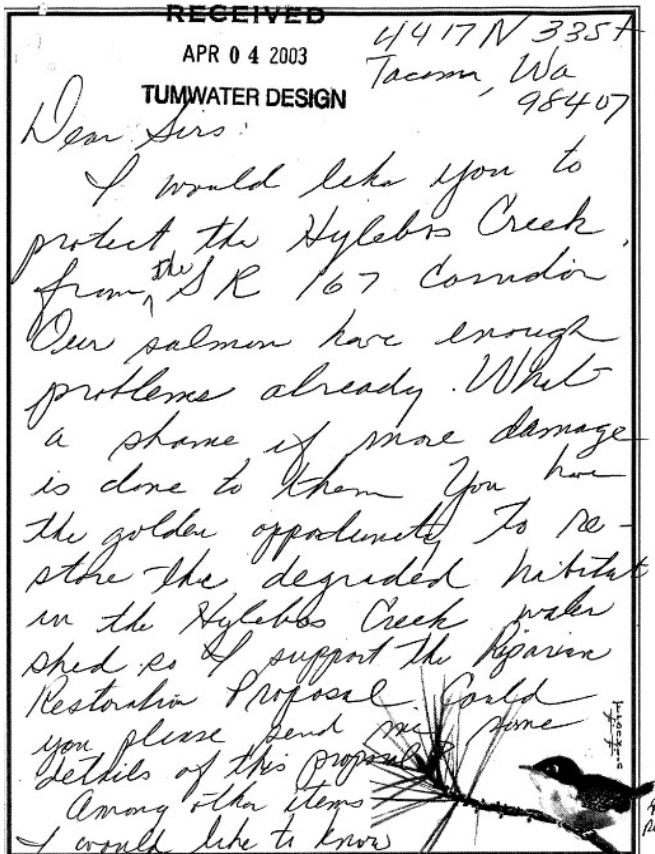 RECEIVED
APR 04 2003
TUMWATER DESIGN
4417 N 33 St
Tacoma, Wa
98407
Dear Sirs:
I would like you to
protect the Hylebos Creek
from the SR 167 Corridor
Our salmon have enough
problems already. What
a shame if more damage
is done to them You have
the golden opportunity to re-
store the degraded habitat
in the Hylebos Creek water
shed so I support the Riparian
Restoration Proposal Could
you please send me some
details of this proposal?
Among other items
I would like to know